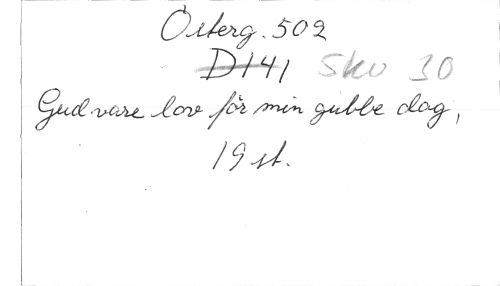 Österg. 502
D141 Sko 30
Gud vare lov för min gubbe dag,
19 st.